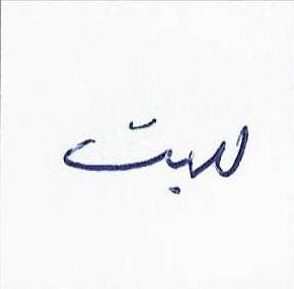 للبت